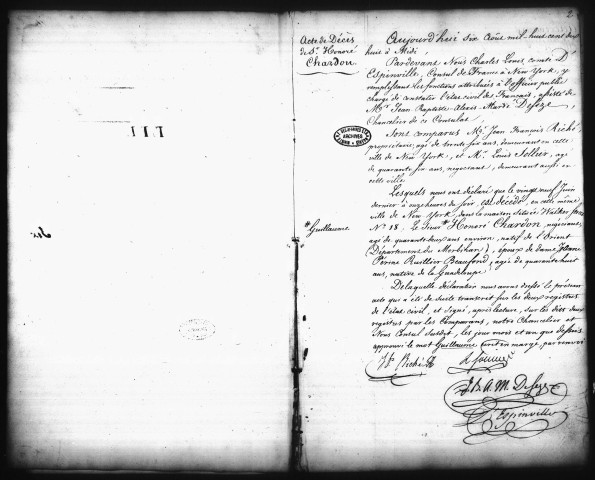 2
Acte de Décès
de Sr. Honoré
Chardon.
Aujourd'hui six Août mil-huit cent dix
huit à Midi,
Pardevant Nous Charles Louis, comte D'
Espinville, Consul de France à New York, y
remplissant les fonctions attribuées à l'officier public
chargé de constater l'état civil des Français, assisté de
Mr. Jean Baptiste Alexis Marie Desèze,
Chancelier de ce Consulat.
Sont comparus Mr. Jean François Riché,
propriétaire, agé de trente six ans, demeurant en cette
ville de New York, et Mr. Louis Sellier, agé
de quarante six ans, négociant, demeurant aussi en
cette ville
Lesquels nous ont déclaré que le vingt neuf Juin
dernier à onze heures du soir, est décédé, en cette même
ville de New York, dans la maison située Walker
Nº 18, Le Sieur # Honoré Chardon, négociant,
# Guillaume
agé de quarante deux ans environ, natif de l'Orient
(Département du Morbihan), époux de dame
Périne Ruillier Beaufond, agée de quarante
ans, native de la Guadeloupe.
De laquelle déclaration nous avons dressé le présent
acte qui a été de suite transcrit sur les deux registres
de l'état civil, et signé, après lecture, sur les dits deux
registres par les Comparans, notre Chancelier et
Nous Consul susdit, les jour, mois et an que dessus
approuvé le mot Guillaume écrit en marge par renvoi
Riché
J. B. A. M. Desèze
D'Espinville